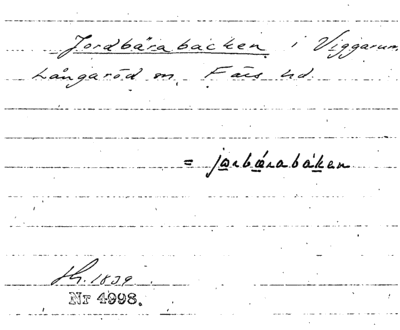 Jordbärabacken i Viggarum
Långaröd sn. Färs hd.
= jorbärabáken
Sk. 1839
Nr 4998.